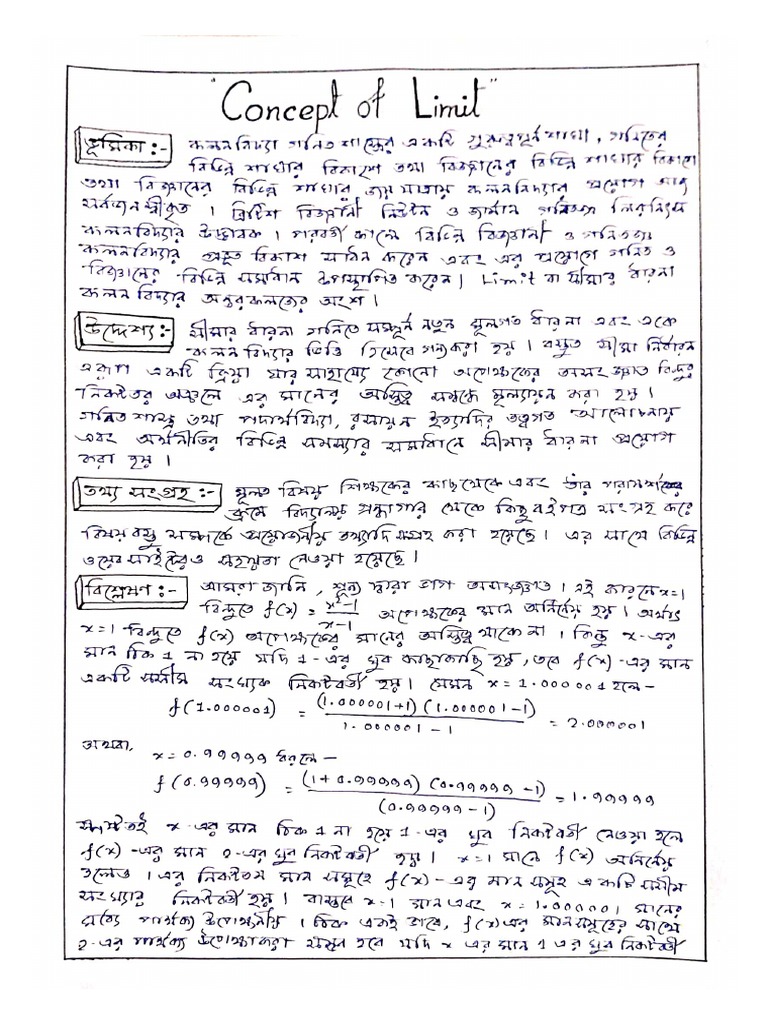 "Concept of Limit"
ভূমিকা :- কলনবিদ্যা গণিত শাস্ত্রের একটি গুরুত্বপূর্ণ শাখা, গণিতের
বিভিন্ন শাখার বিকাশে তথা বিজ্ঞানের বিভিন্ন শাখার বিকাশে
তথা বিজ্ঞানের বিভিন্ন শাখার জয়যাত্রায় কলনবিদ্যার প্রয়োগ আজ
সর্বজনস্বীকৃত । ব্রিটিশ বিজ্ঞানী নিউটন ও জার্মান গণিতজ্ঞ লিবনিৎস
কলনবিদ্যার উদ্ভাবক । পরবর্তী কালে বিভিন্ন বিজ্ঞানী ও গণিতজ্ঞ
কলনবিদ্যার প্রভূত বিকাশ সাধন করেন এবং এর প্রয়োগে গণিত ও
বিজ্ঞানের বিভিন্ন সমাধান উপস্থাপিত করেন । Limit বা সীমার ধারনা
কলনবিদ্যার অন্তরকলজের অংশ ।
উদ্দেশ্য :- সীমার ধারনা গনিতে সম্পূর্ন নতুন মূলগত ধারনা এবং একে
কলনবিদ্যার ভিত্তি হিসেবে গন্যকরা হয় । বস্তুত সীমা নির্ধারন
এরূপ একটি ক্রিয়া যার সাহায্যে কোনো অপেক্ষকের অসংজ্ঞাত বিন্দুর
নিকটতর অঞ্চলে এর মানের অস্তিত্ব সম্বন্ধে মূল্যায়ন করা হয় ।
গনিত শাস্ত্র তথা পদার্থবিদ্যা, রসায়ন ইত্যাদির তত্বগত আলোচনায়
এবং অর্থনীতির বিভিন্ন সমস্যার সমাধানে সীমার ধারনা প্রয়োগ
করা হয় ।
তথ্য সংগ্রহ :- মূলত বিষয় শিক্ষকের কাছ থেকে এবং তাঁর পরামর্শের
ক্রমে বিদ্যালয় গ্রন্থাগার থেকে কিছু বইপত্র সংগ্রহ করে
বিষয় বস্তু সম্পর্কে প্রয়োজনীয় তথ্যাদি সংগ্রহ করা হয়েছে । এর সাথে বিভিন্ন
ওয়েব সাইটেরও সহায়তা নেওয়া হয়েছে ।
বিশ্লেষণ :- আমরা জানি, শূন্য দ্বারা ভাগ অসংজ্ঞাত । এই কারনে x=1
বিন্দুতে f(x) = x²-1 / x-1 অপেক্ষকের মান অনির্ণেয় হয় । অর্থাৎ
x=1 বিন্দুতে f(x) অপেক্ষকের মানের অস্তিত্ব থাকে না । কিন্তু x-এর
মান ঠিক 1 না হয়ে যদি 1-এর খুব কাছাকাছি হয়, তবে f(x)-এর মান
একটি সসীম সংখ্যক নিকটবর্তী হয় । যেমন x = 1.000001 হলে –
f(1.000001) = (1.000001+1) (1.000001-1) / 1.000001-1 = 2.000001
অথবা, x = 0.99999 ধরলে –
f(0.99999) = (1+0.99999) (0.99999-1) / (0.99999-1) = 1.99999
স্পষ্টতই x-এর মান ঠিক 1 না হয়ে 1-এর খুব নিকটবর্তী নেওয়া হলে
f(x)-এর মান 2-এর খুব নিকটবর্তী হয় । x=1 মানে f(x) অনির্ণেয়
হলেও । এর নিকটতম মান সমূহে f(x)-এর মান সমূহ একটি সসীম
সংখ্যার নিকটবর্তী হয় । বাস্তবে x=1 মান এবং x=1.000001 মানের
মধ্যে পার্থক্য উপেক্ষনীয় । ঠিক একই ভাবে, f(x) এর মানসমূহের সাথে
2-এর পার্থক্য উপেক্ষা করা সম্ভব হবে যদি x এর মান 1 এর খুব নিকটবর্তী